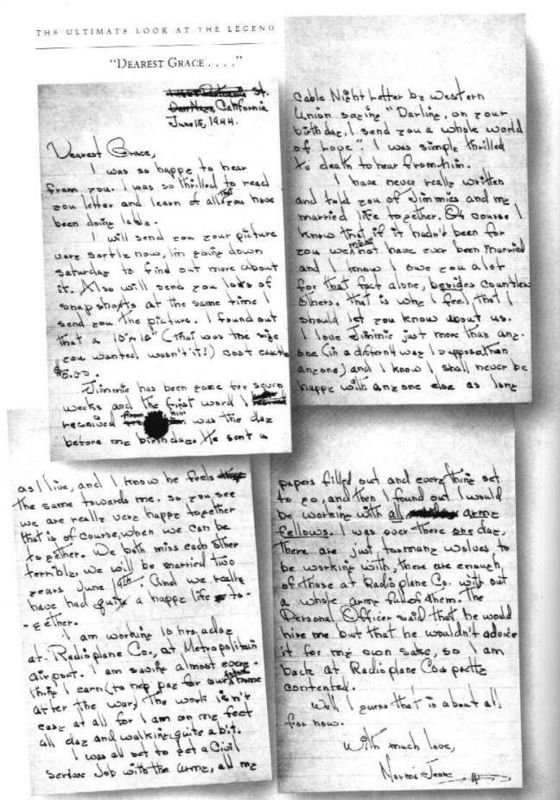 THE ULTIMATE LOOK AT THE LEGEND
"DEAREST GRACE . . . ."
St.
California
June 15, 1944.
Dearest Grace,
I was so happy to hear
from you. I was so thrilled to read
you letter and learn of all you have
been doing lately.
I will send you your picture
very sortly now, I'm going down
saturday to find out more about
it. Also will send you lots of
snap shosts at the same time I
send you the picture. I found out
that a 10" x 12" (that was the size
you wanted wasn't it!) cost
$5.00.
Jimmie has been gone for seven
weeks and the first word I
received from him was the day
before my birthday. He sent a
cable Night Letter by Western
Union saying "Darling, on your
birthday, I send you a whole world
of love". I was simply thrilled
to death to hear from him.
I have never really written
and told you of Jimmies and my
married life together. Of course I
know that if it hadn't been for
you we might not have ever been married
and I know I owe you alot
for that fact alone, besides countless
others, that is why I feel that I
should let you know about us.
I love Jimmie just more than any-
one (in a differnt way I suppose than
anyone) and I know I shall never be
happy with anyone else as long
as I live, and I know he feels
the same towards me. so you see
we are really very happy together
that is of course, when we can be
together. We both miss each other
terribly. we will be married two
years June 19th. And we really
have had quite a happy life to-
-gether.
I am working 10 hrs. a day
at Radioplane Co., at Metropolitain
airport. I am saving almost every-
thing I earn (to help pay for our home
after the war) The work isn't
easy at all for I am on my feet
all day and walking quite a bit.
I was all set to get a Civil
Serivse Job with the army, all my
papers filled out and everything set
to go, and then I found out I would
be working with all army
fellows. I was over there one day,
There are just too many wolves to
be working with, there are enough
of those at Radioplane Co. with out
a whole army full of them. The
Personal Officer said that he would
hire me but that he wouldn't advice
it for my own sake, so I am
back at Radioplane Co. & pretty
contented.
Well I guess that is about all
for now.
With much love,
Norma Jeane